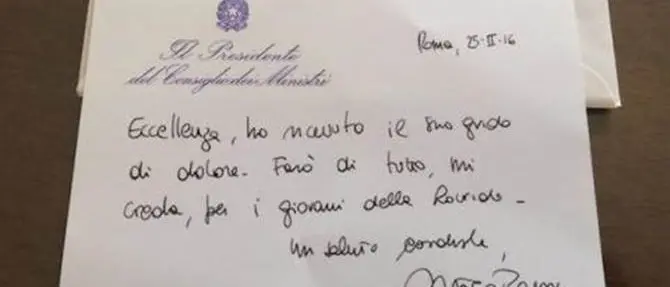 Roma, 25-II-16
Il Presidente
del Consiglio dei Ministri
Eccellenza, ho ricevuto il suo grido
di dolore. Farò di tutto, mi
creda, per i giovani della Locride.
Un saluto cordiale,